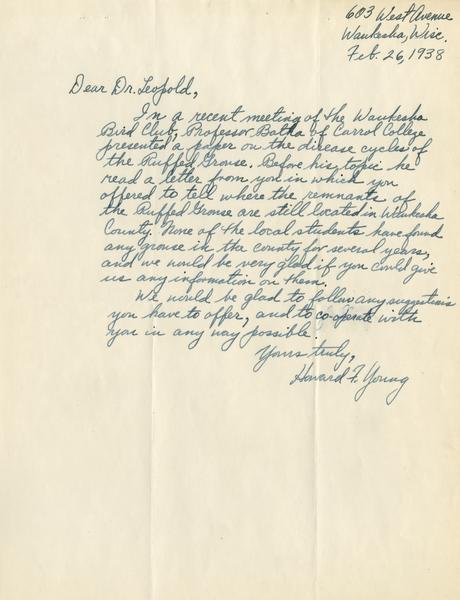 603 West Avenue
Waukesha, Wisc.
Feb. 26, 1938
Dear Dr. Leopold,
In a recent meeting of the Waukesha
Bird Club, Professor Batha of Carrol College
presented a paper on the disease cycles of
the Ruffed Grouse. Before his topic he
read a letter from you in which you
offered to tell where the remnants of
the Ruffed Grouse are still located in Waukesha
County. None of the local students have found
any grouse in the county for several years,
and we would be very glad if you could give
us any information on them.
We would be glad to follow any suggestions
you have to offer, and to co-operate with
you in any way possible.
Yours truly,
Howard F. Young